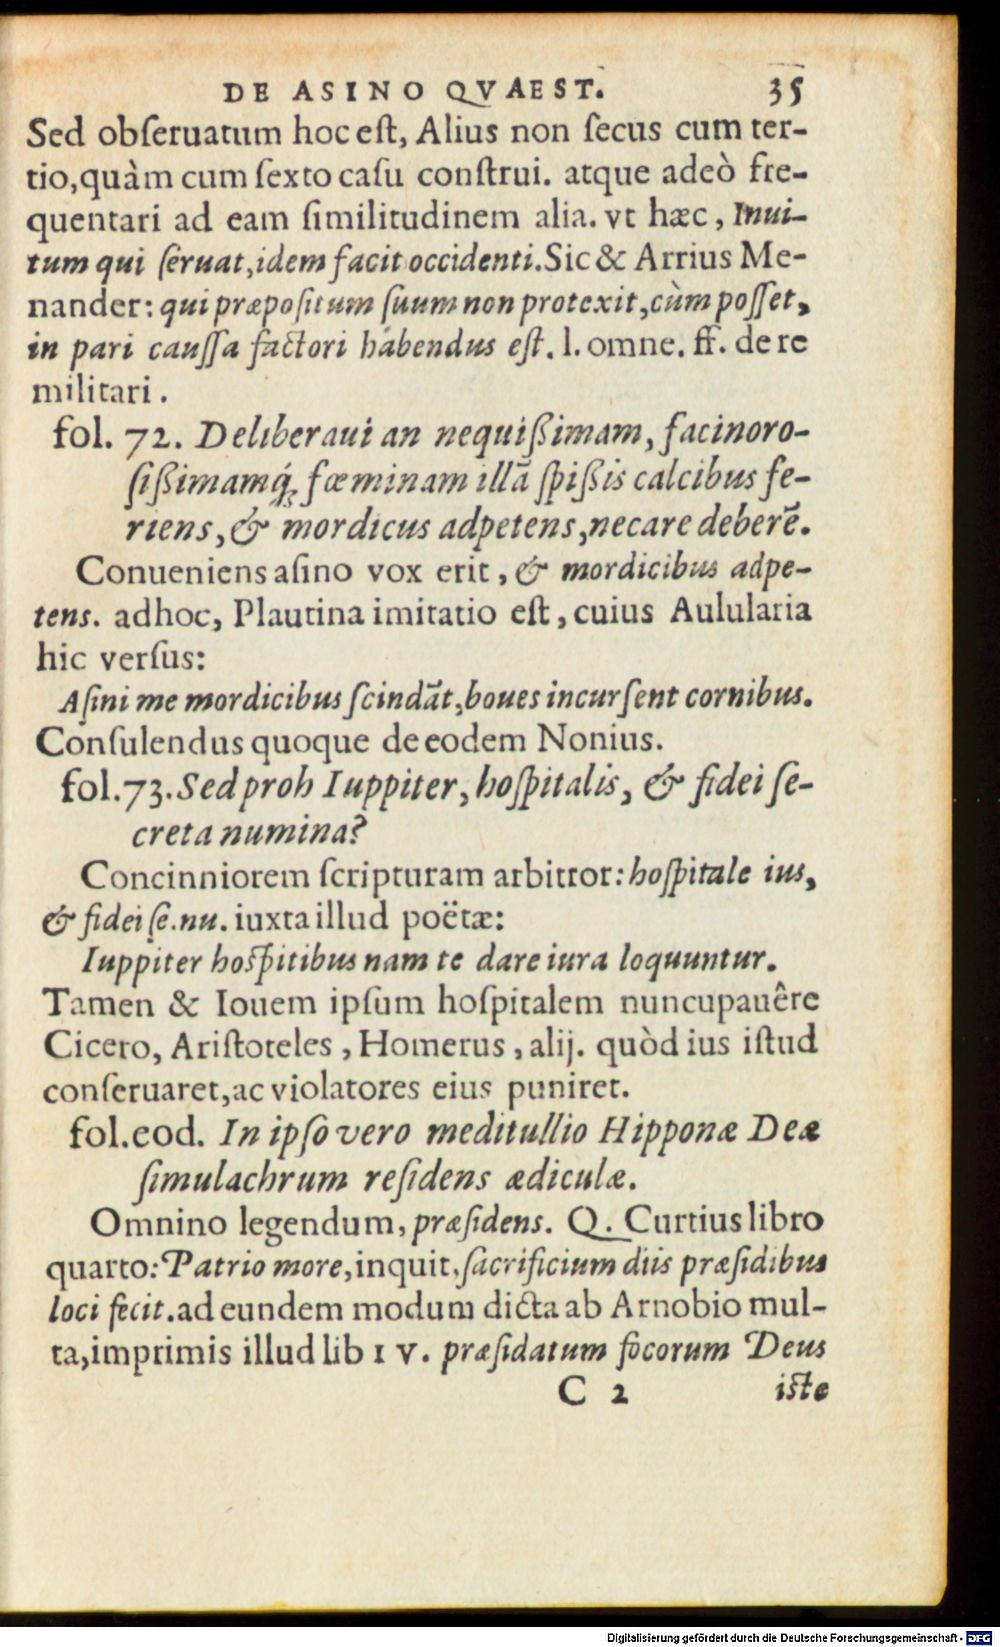 DE ASINO QVAEST. 35
Sed obſeruatum hoc eſt, Alius non ſecus cum ter-
tio, quàm cum ſexto caſu conſtrui. atque adeò fre-
quentari ad eam ſimilitudinem alia. vt hæc, Inui-
tum qui ſeruat, idem facit occidenti. Sic & Arrius Me-
nander: qui præpoſitum ſuum non protexit, cùm poſſet,
in pari cauſſa factori habendus eſt. l. omne. ff. de re
militari.
fol. 72. Deliberaui an nequißimam, facinoro-
ſißimamq́; fœminam illā ſpißis calcibus fe-
riens, & mordicus adpetens, necare deberē.
Conueniens aſino vox erit, & mordicibus adpe-
tens. adhoc, Plautina imitatio eſt, cuius Aulularia
hic verſus:
Aſini me mordicibus ſcindāt, boues incurſent cornibus.
Conſulendus quoque de eodem Nonius.
fol. 73. Sed proh Iuppiter, hoſpitalis, & fidei ſe-
creta numina?
Concinniorem ſcripturam arbitror: hoſpitale ius,
& fidei ſe. nu. iuxta illud poëtæ:
Iuppiter hoſpitibus nam te dare iura loquuntur.
Tamen & Iouem ipſum hoſpitalem nuncupauêre
Cicero, Ariſtoteles, Homerus, alij. quòd ius iſtud
conſeruaret, ac violatores eius puniret.
fol. eod. In ipſo vero meditullio Hipponæ Deæ
ſimulachrum reſidens ædiculæ.
Omnino legendum, præſidens. Q. Curtius libro
quarto: Patrio more, inquit, ſacrificium diis præſidibus
loci fecit. ad eundem modum dicta ab Arnobio mul-
ta, imprimis illud lib IV. præſidatum focorum Deus
C 2 iſte
Digitalisierung gefördert durch die Deutsche Forschungsgemeinschaft - DFG